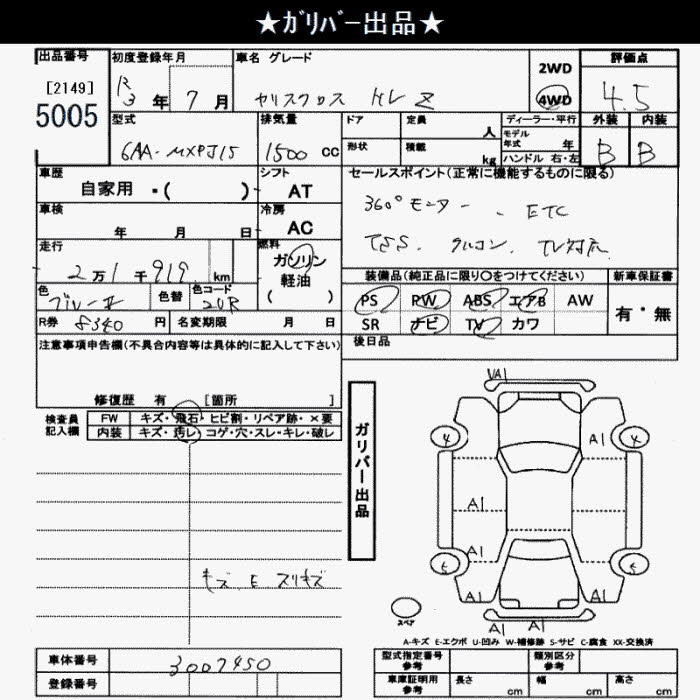 ★ｶﾞﾘﾊﾞｰ出品★
出品番号 初度登録年月 車名 グレード 評価点
[2149] 2WD
5005 R3年 7月 ヤリスクロス HV Z 4WD 4.5
型式 排気量 ドア 定員 人 ディーラー・平行 外装 内装
6AA-MXPJ15 1500 CC 形状 積載 kg モデル年式 年 B B
ハンドル 右・左
車歴 シフト セールスポイント(正常に機能するものに限る)
自家用 ・( ) AT 360°モニター 、ETC
車検 冷房
年 月 日 AC TSS、クルコン、TV対応
走行 燃料
2万1千919km ガソリン 装備品(純正品に限り○をつけてください) 新車保証書
色 色替 色コード 軽油 PS PW ABS エアB AW 有・無
( ) SR ナビ TV カワ
R券 8340 円 名変期限 月 日
注意事項申告欄(不具合内容等は具体的に記入して下さい) 後日品
修復歴 有 [箇所 ]
検査員 FW キズ・飛石・ヒビ割・リペア跡・×要
記入欄 内装 キズ・汚レ・コゲ・穴・スレ・キレ・破レ
ガリバー出品
A1
4 A1 4
A1
A1
5 5
A1 A1
A1 A1
キズ、E スリキズ
スペア
A-キズ E-エクボ U-凹み W-補修跡 S-サビ C-腐食 XX-交換済
車体番号 3007450
登録番号
型式指定番号 参考 類別区分 参考
車庫証明用 参考 長さ cm 幅 cm 高さ cm